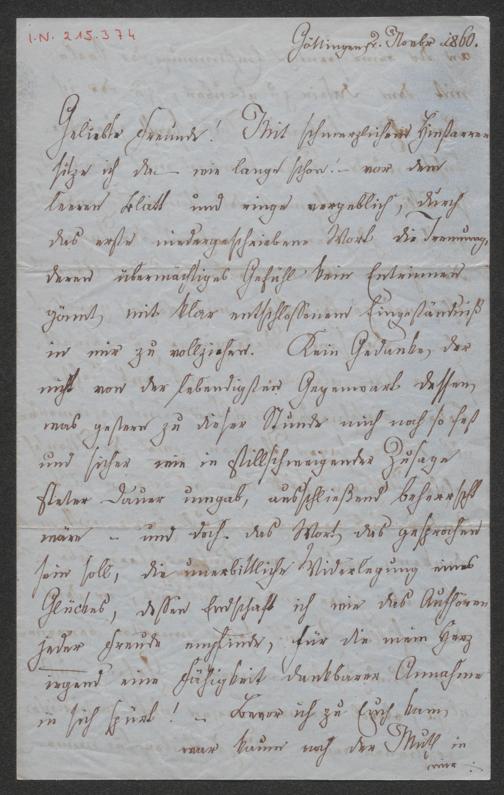 I.N. 215.374
Göttingen 2. Novbr 1860.
Geliebte Freunde! Mit schmerzlichem Hinstarren
sitze ich da – wie lange schon! – vor dem
leeren Blatt und ringe vergeblich, durch
das erste niedergeschriebene Wort die Trennung,
deren übermächtiges Gefühl kein Entrinnen
gönnt, mit klar entschlossenem Eingeständniß
in mir zu vollziehen. Kein Gedanke, der
nicht von der lebendigsten Gegenwart dessen,
was gestern zu dieser Stunde mich noch so fest
und sicher wie in stillschweigender Zusage
steter Dauer umgab, ausschließend beherrscht
wäre – und doch das Wort, das gesprochen
sein soll, die unerbittliche Widerlegung eines
Glückes, dessen Endschaft ich wie das Aufhören
jeder Freude empfinde, für die mein Herz
irgend eine Fähigkeit dankbarer Annahme
in sich spürt! – Bevor ich zu Euch kam,
war kaum noch der Muth in